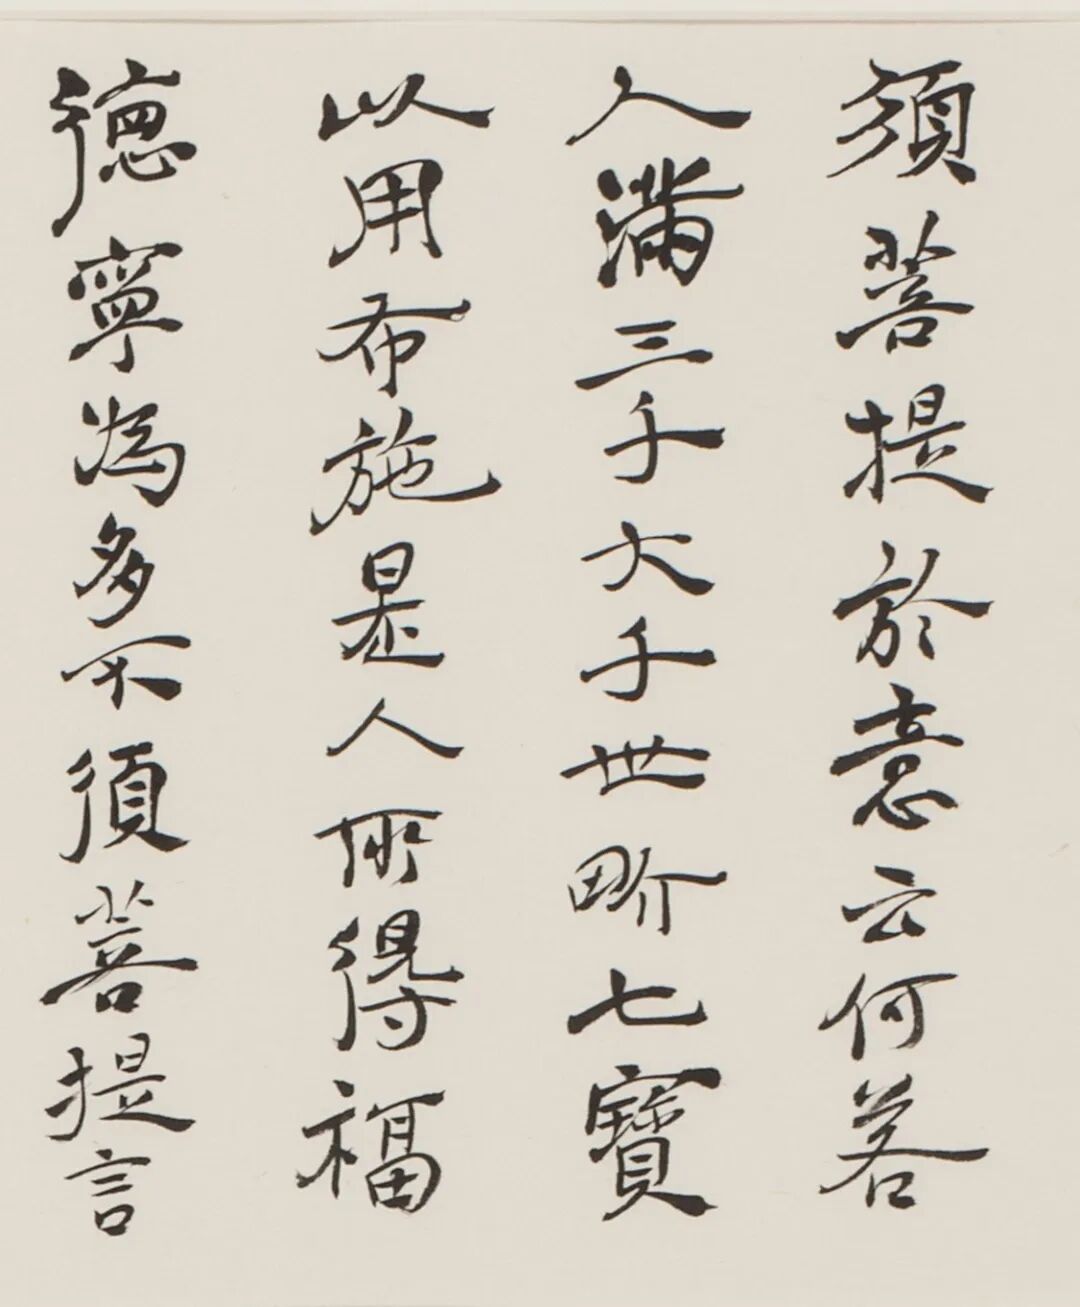 須菩提於意云何若
人滿三千大千世界七寶
以用布施是人所得福
德寧為多不須菩提言